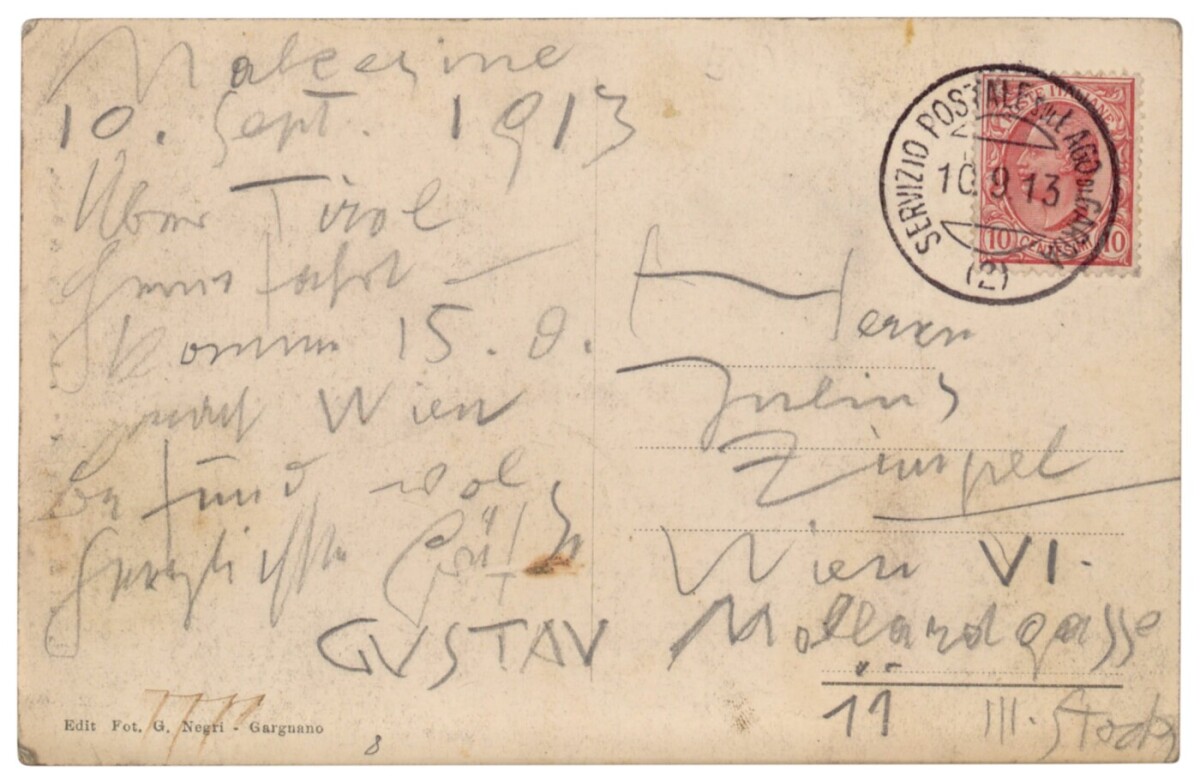 Malcesine
10. Sept. 1913
Über Tirol
fahrt –
Komme 15. 9.
nach Wien
Befund wol
Herzlichste Grüße
GUSTAV
Edit Fot. G. Negri - Gargnano
8
SERVIZIO POSTALE SUL LAGO DI GARDA
10 9 13
(2)
POSTE ITALIANE
10 CENTESIMI 10
Herrn
Julius
Zimpel
Wien VI.
Mollardgasse
11 III. Stock